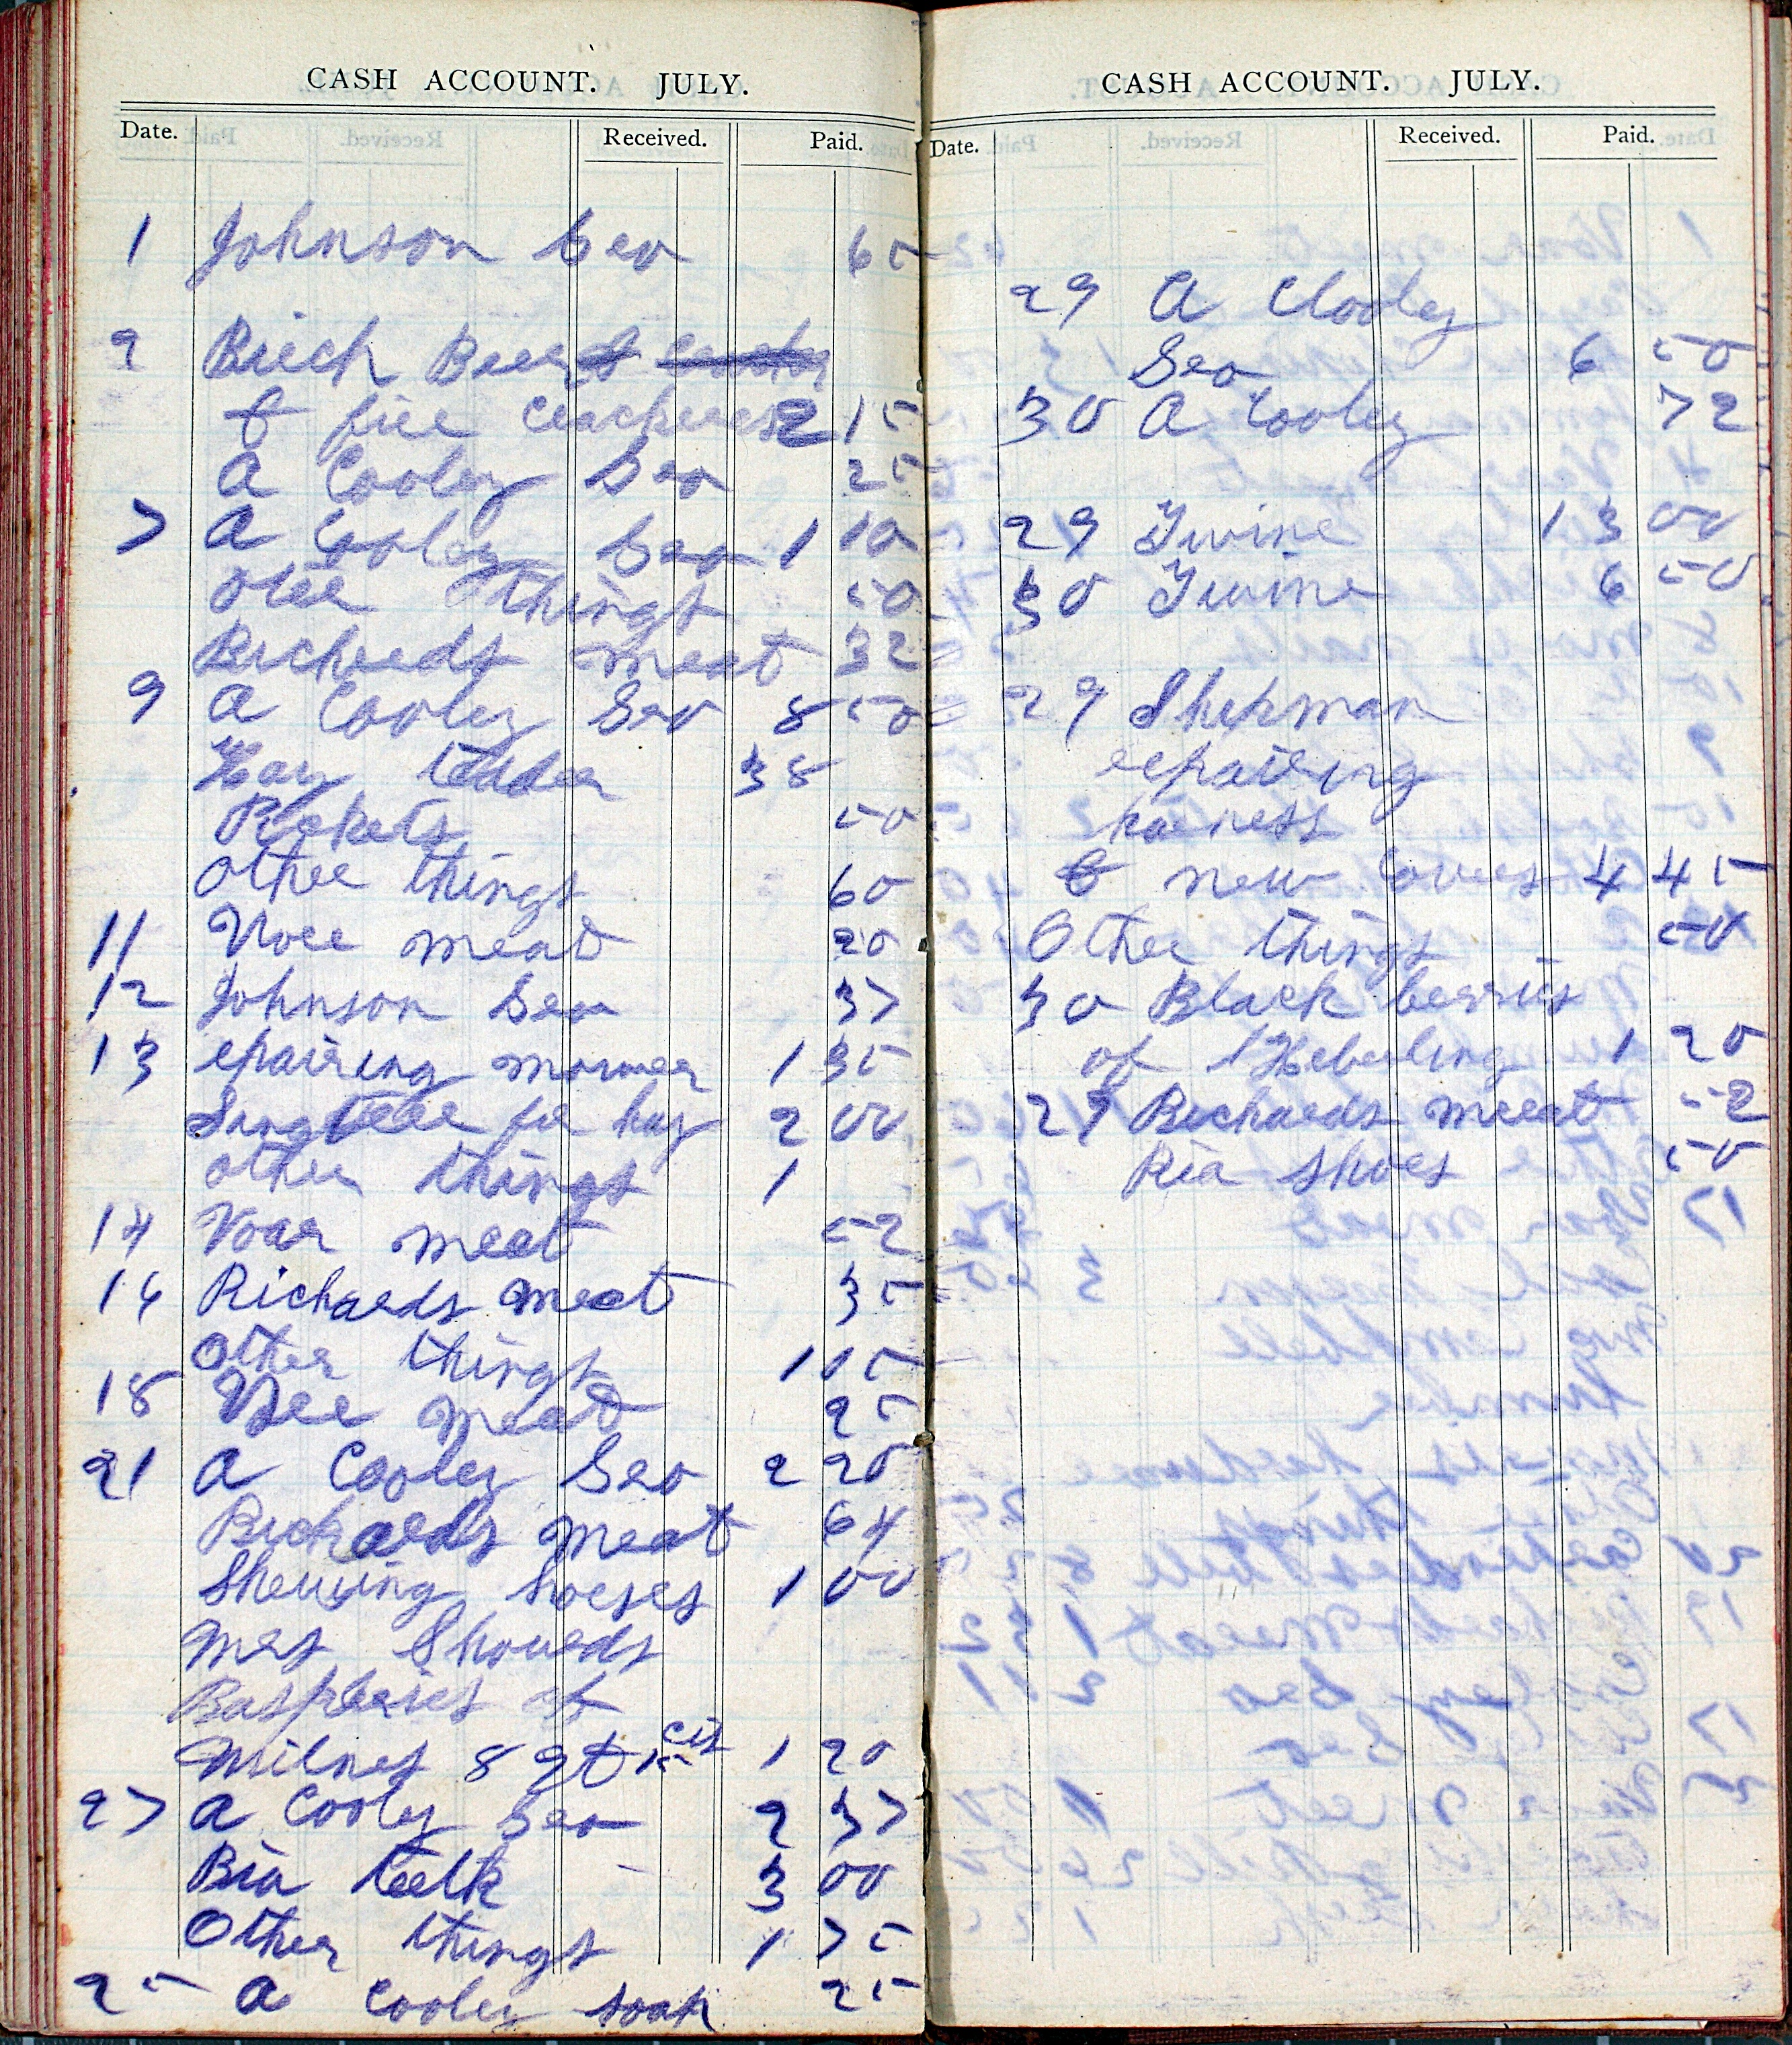 CASH ACCOUNT. JULY.
Date. Received. Paid.
1 Johnson Gro 65
2 Birch Beer
& fire crackers 2 15
A Cooley Gro 25
7 A Cooley Gro 1 10
other things 50
Richreds meat 32
9 A Cooley Gro 8 50
Hay tedder 38
Rockets 50
other things 60
11 Vore meat 20
12 Johnson Gro 37
13 epairing mowwer 1 35
for hay 2 00
other things 1
14 Voar meat 52
16 Richards meat 35
Other things 1 05
18 meat 25
21 A Cooley Gro 2 20
Richards meat 64
Shewing horses 1 00
Mrs
of
Milnes 8 qt 15 cts 1 20
27 A Cooley Gro 2 37
Ria teeth 3 00
Other things 1 75
25 A Cooley soap 25
CASH ACCOUNT. JULY.
Date. Received. Paid.
29 A Clooley
Gro 6 50
30 A Cooley 72
29 Twine 13 00
30 Twine 6 50
29 Shepman
repairing
harness
& new 4 45
Other things 50
30 Black berries
of Heberling 1 20
29 Richards meeat 52
Ria shoes 50